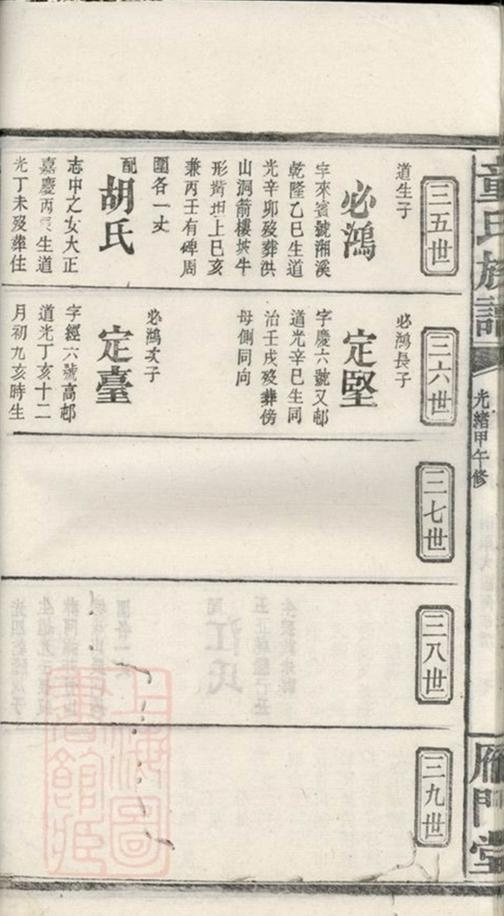 童氏族譜
光緒甲午修
雁門堂
三五世
道生子
必鴻
字來賓號湘溪
乾隆乙巳生道
光辛卯歿葬洪
山洞箭樓坡牛
形 坦上巳亥
兼丙壬有碑周
圍各一丈
配
胡氏
志中之女大正
嘉慶丙辰生道
光丁未歿葬住
三六世
必鴻長子
定堅
字慶六號又邨
道光辛巳生同
治壬戌歿葬傍
母側同向
必鴻次子
定臺
字經六號高邨
道光丁亥十二
月初九亥時生
三七世
三八世
三九世
上海圖書館藏